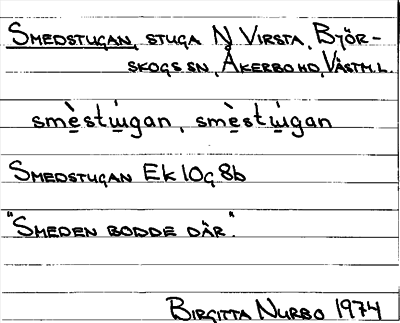 SMEDSTUGAN, STUGA N VIRSTA, BJÖR-
SKOGS SN, ÅKERBO HD, VÄSTM.L.
smè̱stú̱gan, smè̱stú̱gan
SMEDSTUGAN Ek 10g 8b
"SMEDEN BODDE DÄR".
BIRGITTA NURBO 1974